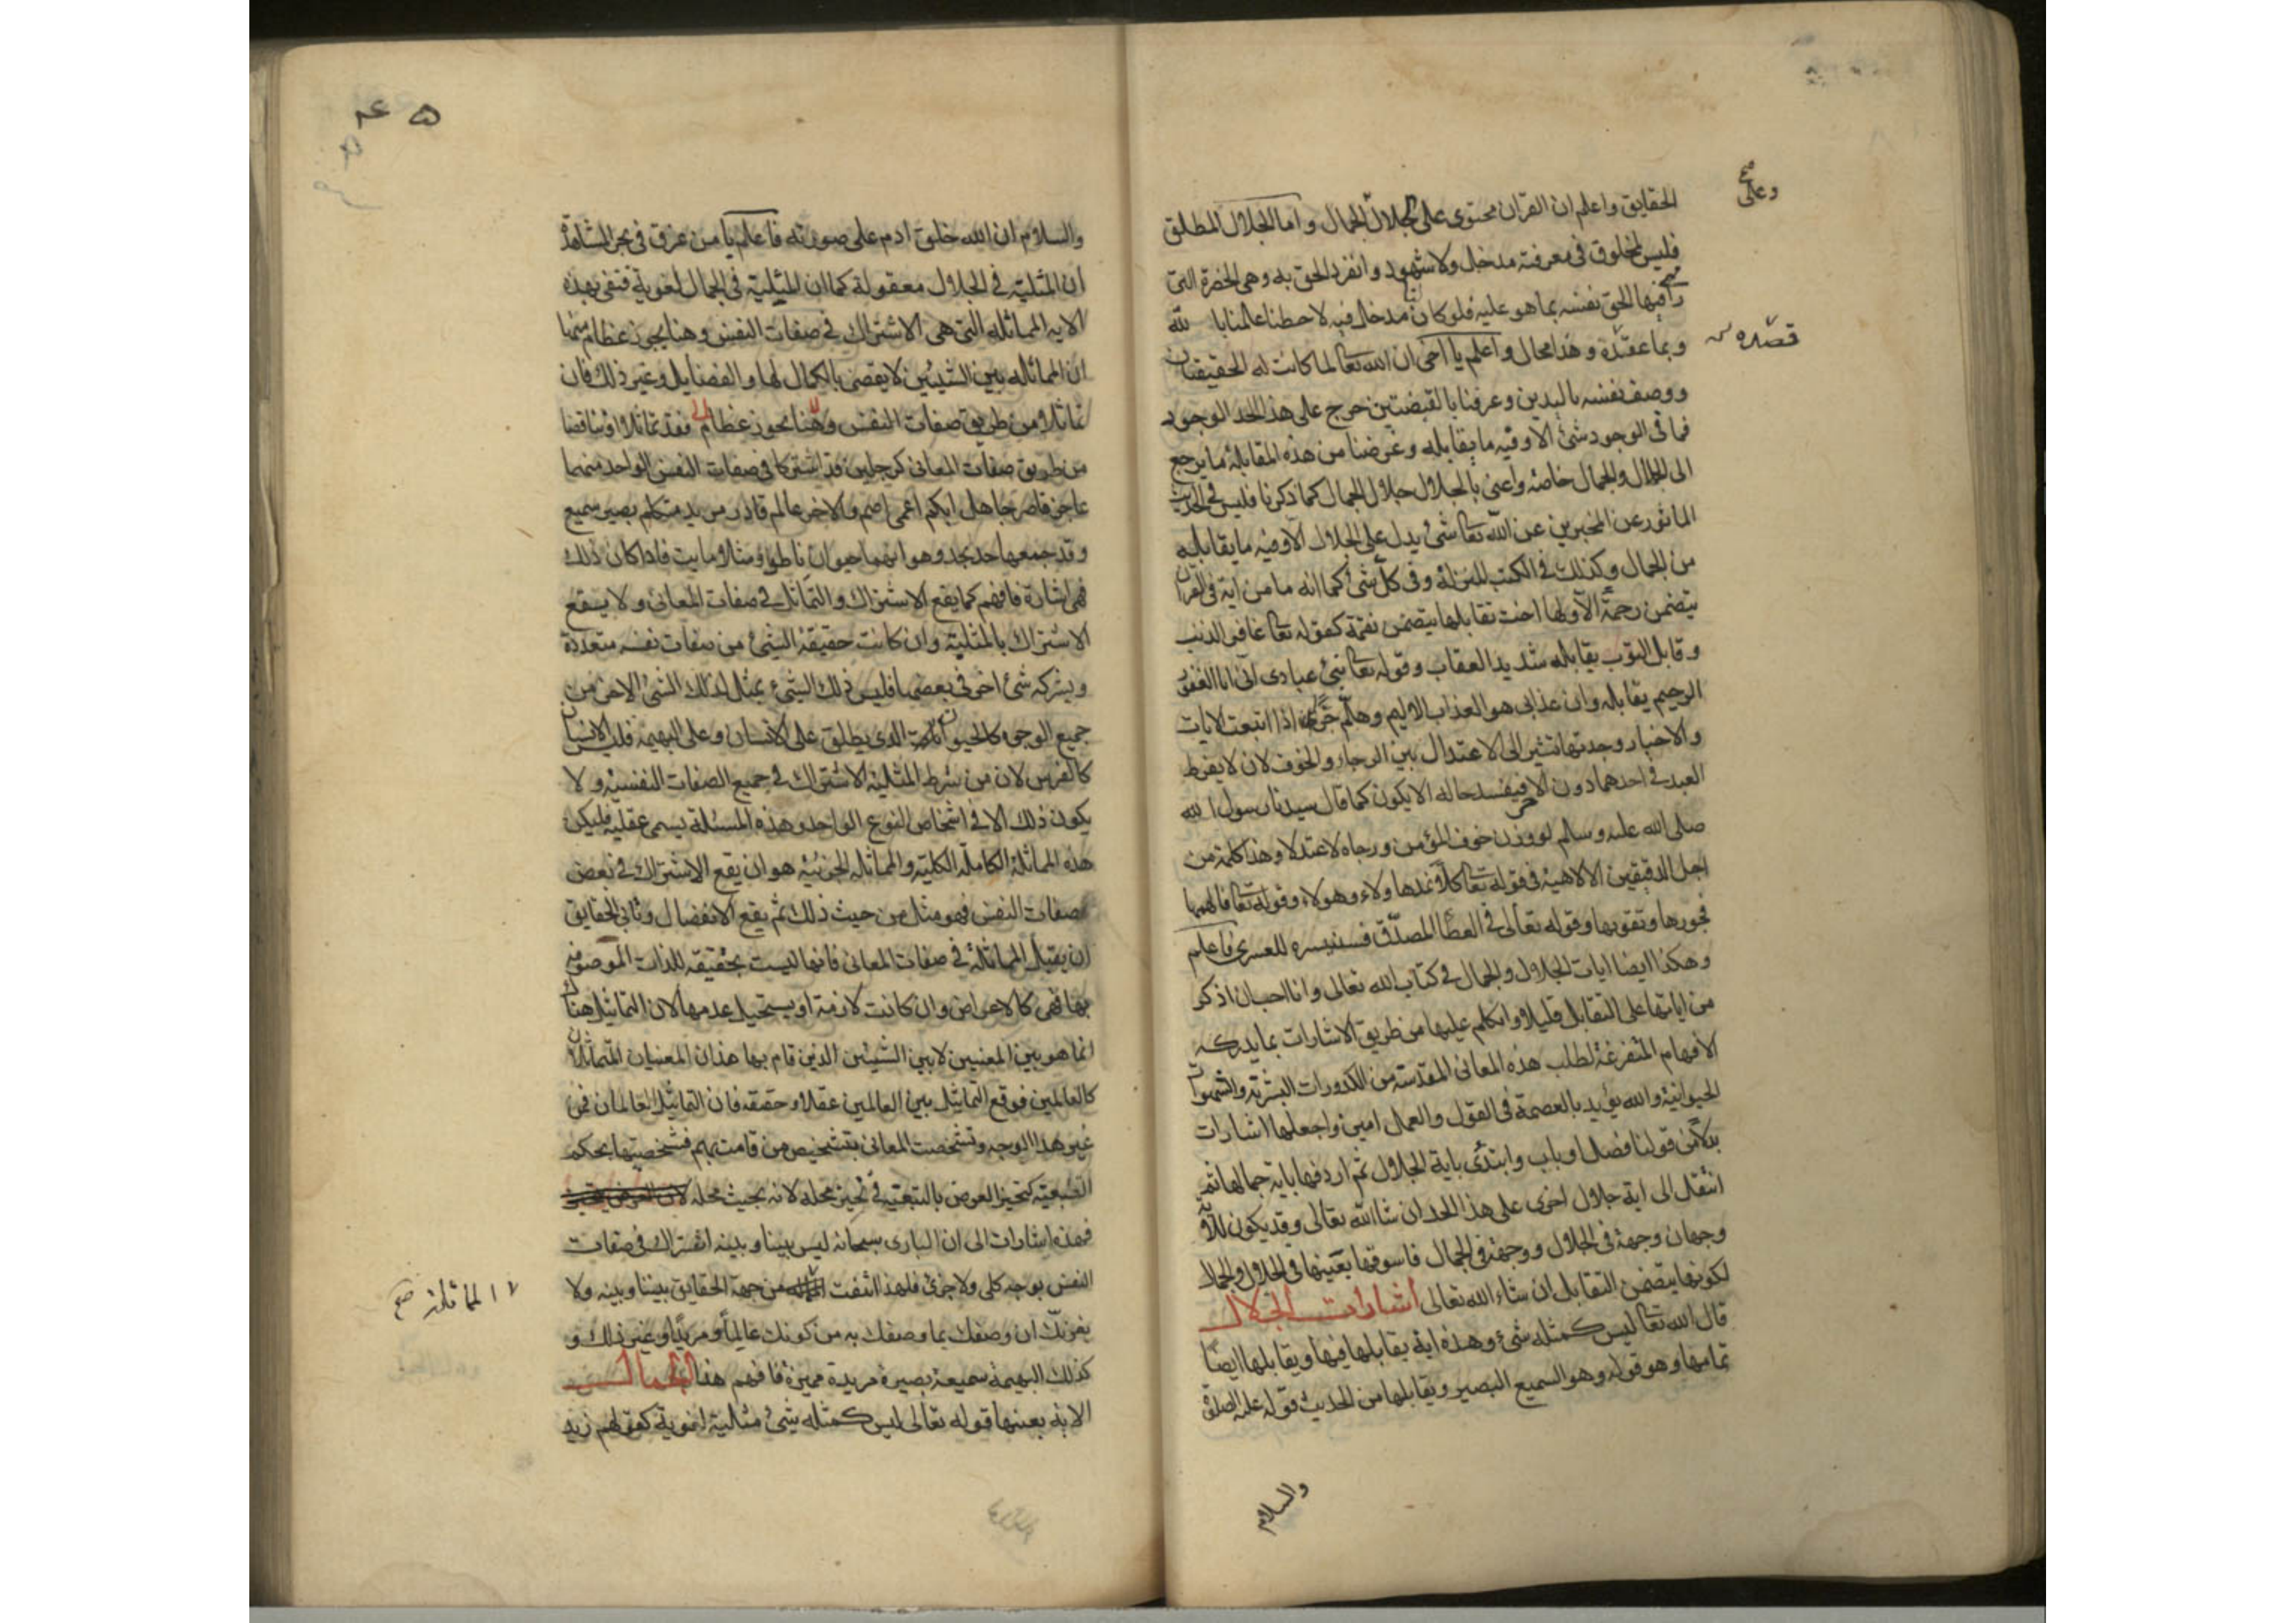 الحقايق واعلم ان القرآن محتوى على جلال الجمال واما الجلال المطلق
وعلى صح
فليس لمخلوق فى معرفته مدخل ولا شهود وانفرد الحق به وهى الحضرة التى
فيها الحق نفسه بما هو عليه فلو كان مدخل فيه لاحطنا علما بالله
وبما عنده وهذا محال واعلم يا اخى ان الله تعا لما كانت له الحقيقتان
ووصف نفسه باليدين وعرفنا بالقبضتين خرج على هذا الحد الوجود
فما فى الوجود شئ الا وفيه ما يقابله وغرضنا من هذه المقابلة ما يرجع
الى الجلال والجمال خاصة واعنى بالجلال جلال الجمال كما ذكرنا فليس فى الحديث
الماثور عن المخبرين عن الله تعا شئ يدل على الجلال الا وفيه ما يقابله
من الجمال وكذلك فى الكتب المنزلة وفى كل شئ كما انه ما من اية فى القرآن
يتضمن رحمة الا ولها اخت تقابلها يتضمن نقمة كقوله تعا غافر الذنب
وقابل التوب يقابله شديد العقاب وقوله تعا نبئ عبادى انى انا الغفور
الرحيم يقابله وان عذابى هو العذاب الاليم وهلم جرا اذا اتبعت الايات
والاخبار وجدتها تشير الى الاعتدال بين الرجاء والخوف لان لا يفرط
العبد فى احدهما دون الاخر فيفسد حاله الا يكون كما قال سيدنا رسول الله
صلى الله عليه وسالم لو وزن خوف المؤمن ورجاه لاعتدلا وهذا كلمة من
اجل الدقيقين الالاهية فى قوله تعا كلا نمد هاولاء وهولاء وقوله تعا فالهمها
فجورها وتقويها وقوله تعالى فى العطا المصدق فسنيسره للعسرى فاعلم
وهكذا ايضا ايات الجلال والجمال فى كتاب الله تعالى وانا احب ان اذكر
من اياتها على التقابل قليلا واتكلم عليها من طريق الاشارات بما يدركه
الافهام المتفرغة لطلب هذه المعانى المقدسة من الكدورات البشرية والشهوات
الحيوانية والله يؤيد بالعصمة فى القول والعمل امين واجعلها اشارات
بدلا من قولنا فصل او باب وابتدئ باية الجلال ثم اردفها باية جمالها ثم
انتقل الى اية جلال اخرى على هذا الحد ان شا الله تعالى وقد يكون للاية
وجهان وجهة فى الجلال ووجهة فى الجمال فاسوقها بعينها فى الجلال والجمال
لكونها يتضمن التقابل ان شاء الله تعالى اشارات الجلال
قال الله تعا ليس كمثله شئ وهذه اية يقابلها فيها ويقابلها ايضا
تمامها وهو قوله وهو السميع البصير ويقابلها من الحديث قوله عليه الصلوة
والسلام
والسلام ان الله خلق ادم على صورته فاعلم يا من غرق فى بحر المشاهدة
ان المثلية فى الجلال معقولة كما ان المثلية فى الجمال لغوية فنفى بهذه
الايه المماثله التى هى الاشتراك فى صفات النفس وهنا بحور عظام منها
ان المماثله بين الشيئين لا يقضى بالكمال لها والفضايل وغير ذلك فان
تماثلا من طريق صفات النفس وهنا بحور عظام فقد تماثلا وتناقضا
من طريق صفات المعانى كرجلين قد اشتركا فى صفات النفس الواحد منهما
عاجز قاصر جاهل ابكم اعمى اصم والاخر عالم قادر مريد متكلم بصير سميع
وقد جمعها حد بحد وهو انهما حيوان ناطق ومثلا مايت فاذا كان ذلك
فهى اشارة فافهم كما يقع الاشتراك والتماثل فى صفات المعانى ولا يقع
الاشتراك بالمثلية وان كانت حقيقة الشئ من صفات نفسه متعددة
ويشركه شئ اخر فى بعضها فليس ذلك الشئ يمثل لذلك الشئ الاخر من
جميع الوجوه كالحيوان الذى يطلق على الانسان وعلى البهيمة فليس الانسان
كالفرس لان من شرط المثلية الاشتراك فى جميع الصفات النفسية ولا
يكون ذلك الا فى اشخاص النوع الواحد وهذه المسئلة يسمى عقلية فليكن
هذه المماثلة الكاملة الكلية والمماثلة الجزئية هو ان يقع الاشتراك فى بعض
صفات النفس فهو مثل من حيث ذلك ثم يقع الانفصال وتابى الحقايق
ان يقبل المماثلة فى صفات المعانى فانها ليست بحقيقة للذات الموصوفة
بها فهى كالاعراض وان كانت لازمة او يستحيل عدمها لان التماثيل هناك
انما هو بين المعنيين لا بين الشيئين الذين قام بها هذان المعنيان المتماثلان
كالعالمين فوقع التماثيل بين العالمين عقلا وحقيقة فان التماثيل العالمان فمن
غير هذا الوجه وتشخصت المعانى بتشخيص من قامت بهم فشخصيتها بحكم
التبعية كتحيز العرض بالتبعية فى تحيز محله لانه بحيث محله
فهذه اشارات الى ان البارى سبحانه ليس بيننا وبينه اشتراك فى صفات
النفس بوجه كلى ولا جزئ فلهذا انتفت من جهة الحقايق بيننا وبينه ولا
المماثلة صح
يغرنك ان وصفك بما وصفك به من كونك عالما ومريدا وغير ذلك و
كذلك البهيمة سميعة بصيرة مريدة مميزة فافهم هذا الجمال
الاية بعينها قوله تعالى ليس كمثله شئ مثلية لغوية كقولهم زيد